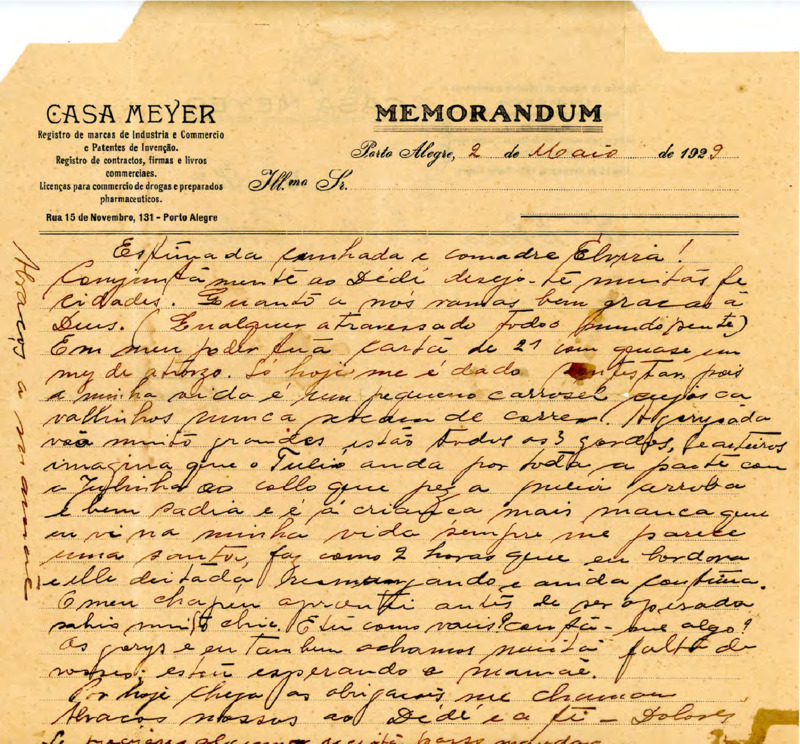 CASA MEYER
Registro de marcas de Industria e Commercio
e Patentes de Invenção.
Registro de contractos, firmas e livros
commerciaes.
Licenças para commercio de drogas e preparados
pharmaceuticos.
Rua 15 de Novembro, 131 - Porto Alegre
MEMORANDUM
Porto Alegre, 2 de Maio de 1929
Ill.mo Sr.
Estimada cunhada e comadre Elvira!
Conjuntamente ao Dédé desejo-te muitas fe
cidades. Quanto a nós vamos bem graças á
Deus. (Qualquer atravessado todo o mundo sente)
Em meu poder tua carta de 21 com quase um
mez de atrazo. Só hoje me é dado contestar, pois
a minha vida é um pequeno carrosel cujos ca
valhinhos nunca de correr. A gurysada
vae muito grandes estão todos os 3 gordos,
imagina que o Tulio anda por toda a parte com
a Julinha ao collo que peza meia arroba
e bem sadia e é a criança mais mansa que
eu vi na minha vida sempre me parece
uma santa, faz como 2 horas que eu bordora
e ella deitada e ainda continua.
O meu chapéu apromtei antes de ser operada
sahio muito chic. E tu como vaes? conta-me algo?
Os gurys e eu tambem achamos muita falta de
vosses; estou esperando a mamãe.
Por hoje chega as obrigações me chamam
Abraços nossos ao Dédé e a ti - Dolores
Se precisares alguma
Abraços a mamãe